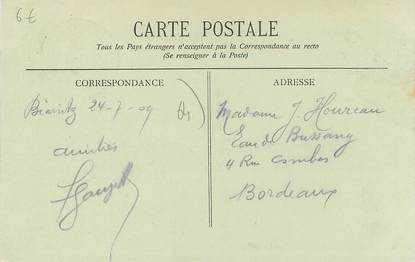 6€
CARTE POSTALE
Tous les Pays étrangers n'acceptent pas la Correspondance au recto
(Se renseigner à la Poste)
CORRESPONDANCE
Biarritz 24-7-09
amitiés
ADRESSE
Madame J. Houreau
Eau de Bussang
4 Rue Combes
Bordeaux